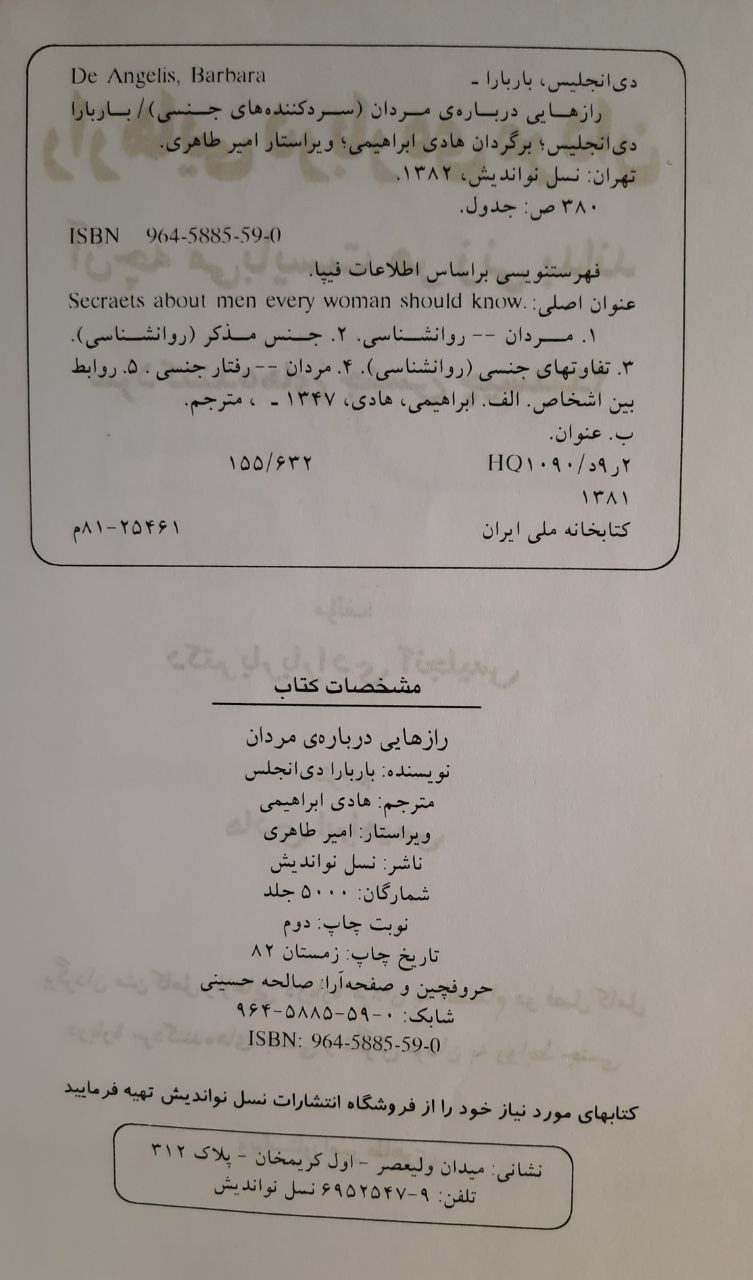 De Angelis, Barbara دی‌انجلیس، باربارا ـ
رازهـایی دربـاره‌ی مـردان (سـردکننده‌های جـنسی)/ بـاربارا
دی‌انجلیس؛ برگردان هادی ابراهیمی؛ ویراستار امیر طاهری.
تهران: نسل نواندیش، ۱۳۸۲.
۳۸۰ ص: جدول.
ISBN 964-5885-59-0
فهرستنویسی براساس اطلاعات فیپا.
عنوان اصلی: Secraets about men every woman should know.
۱. مـردان -- روانشـناسی. ۲. جـنس مـذکر (روانشناسی).
۳. تفاوتهای جنسی (روانشناسی). ۴. مردان -- رفتار جنسی. ۵. روابط
بین اشخاص. الف. ابراهیمی، هادی، ۱۳۴۷ ـ ، مترجم.
ب. عنوان.
۲ر۹د/HQ۱۰۹۰ ۱۵۵/۶۳۲
۱۳۸۱
کتابخانه ملی ایران ۸۱-۲۵۴۶۱م
مؤلف:
دکتر باربارا دی آنجلیس
مشخصات کتاب
رازهایی درباره‌ی مردان
نویسنده: باربارا دی‌انجلس
مترجم: هادی ابراهیمی
ویراستار: امیر طاهری
ناشر: نسل نواندیش
شمارگان: ۵۰۰۰ جلد
نوبت چاپ: دوم
تاریخ چاپ: زمستان ۸۲
حروفچین و صفحه‌آرا: صالحه حسینی
شابک: ۰-۵۹-۵۸۸۵-۹۶۴
ISBN: 964-5885-59-0
کتابهای مورد نیاز خود را از فروشگاه انتشارات نسل نواندیش تهیه فرمایید
نشانی: میدان ولیعصر - اول کریمخان - پلاک ۳۱۲
تلفن: ۹-۶۹۵۲۵۴۷ نسل نواندیش